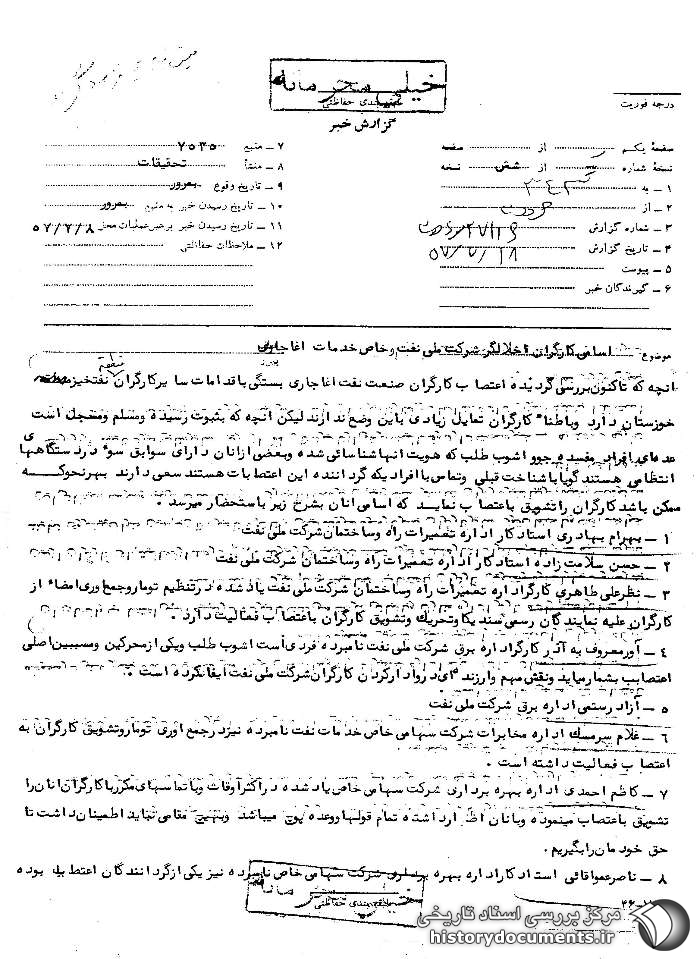 خیلی محرمانه
طبقه‌بندی حفاظتی
گزارش خبر
درجه فوریت
صفحهٔ یکم از صفحه
نسخهٔ شماره از شش نسخه
۱ ـ به ۳۴۳
۲ ـ از
۳ ـ شماره گزارش
۴ ـ تاریخ گزارش
۵ ـ پیوست
۶ ـ گیرندگان خبر
۷ ـ منبع ۷۵۳۵
۸ ـ منشأ تحقیقات
۹ ـ تاریخ وقوع بمرور
۱۰ ـ تاریخ رسیدن خبر به منبع بمرور
۱۱ ـ تاریخ رسیدن خبر برهبر عملیات محل ۵۷/۷/۸
۱۲ ـ ملاحظات حفاظتی
موضوع اسامی کارگران اخلالگر شرکت ملی نفت وخاص خدمات اغاجاری
انچه که تاکنون بررسی گردیده اعتصاب کارگران صنعت نفت اغاجاری بستگی باقدامات سایر کارگران نفتخیز منطقه
خوزستان دارد وباطنا" کارگران تمایل زیادی باین وضع ندارند لیکن انچه که بثبوت رسیده ومسلم ومسجل است
عده‌ای افراد مفسده جوو اشوب طلب که هویت انها شناسائی شده وبعضی ازانان دارای سوابق سوء در دستگاههای
انتظامی هستند گویا باشناخت قبلی وتماس باافرادیکه گرداننده این اعتصابات هستند سعی دارند بهرنحوکه
ممکن باشد کارگران را تشویق باعتصاب نمایند که اسامی انان بشرح زیر باستحضار میرسد .
۱ ـ بهرام بهادری استادکار اداره تعمیرات راه وساختمان شرکت ملی نفت
۲ ـ حسن سلامت زاده استادکار اداره تعمیرات راه وساختمان شرکت ملی نفت
۳ ـ نظرعلی طاهری کارگر اداره تعمیرات راه وساختمان شرکت ملی نفت یادشده درتنظیم تومار وجمع‌وری امضاء از
کارگران علیه نمایندگان رسمی سندیکا وتحریک وتشویق کارگران باعتصاب فعالیت دارد .
۴ ـ آور معروف به آذر کارگر اداره برق شرکت ملی نفت نامبرده فردی است اشوب طلب ویکی ازمحرکین ومسببین اصلی
اعتصاب بشمار میاید ونقش مهم وارزنده‌ای در وادار کردن کارگران شرکت ملی نفت ایفا نکرده است .
۵ ـ آزاد رستمی اداره برق شرکت ملی نفت
۶ ـ غلام سرمست اداره مخابرات شرکت سهامی خاص خدمات نفت نامبرده نیز در جمع اوری تومار وتشویق کارگران به
اعتصاب فعالیت داشته است .
۷ ـ کاظم احمدی اداره بهره برداری شرکت سهامی خاص یاد شده در اکثر اوقات وبا تماسهای مکرر با کارگران انان را
تشویق باعتصاب مینموده وبانان اظهار داشته تمام قولها ووعده پوچ میباشد وبهیچ مقامی نباید اطمینان داشت تا
حق خودمان رابگیریم .
۸ ـ ناصر عمواقائی استادکار اداره بهره برداری شرکت سهامی خاص نامبرده نیز یکی از گردانندگان اعتصاب بوده
خیلی محرمانه
طبقه‌بندی حفاظتی
مرکز بررسی اسناد تاریخی
historydocuments.ir